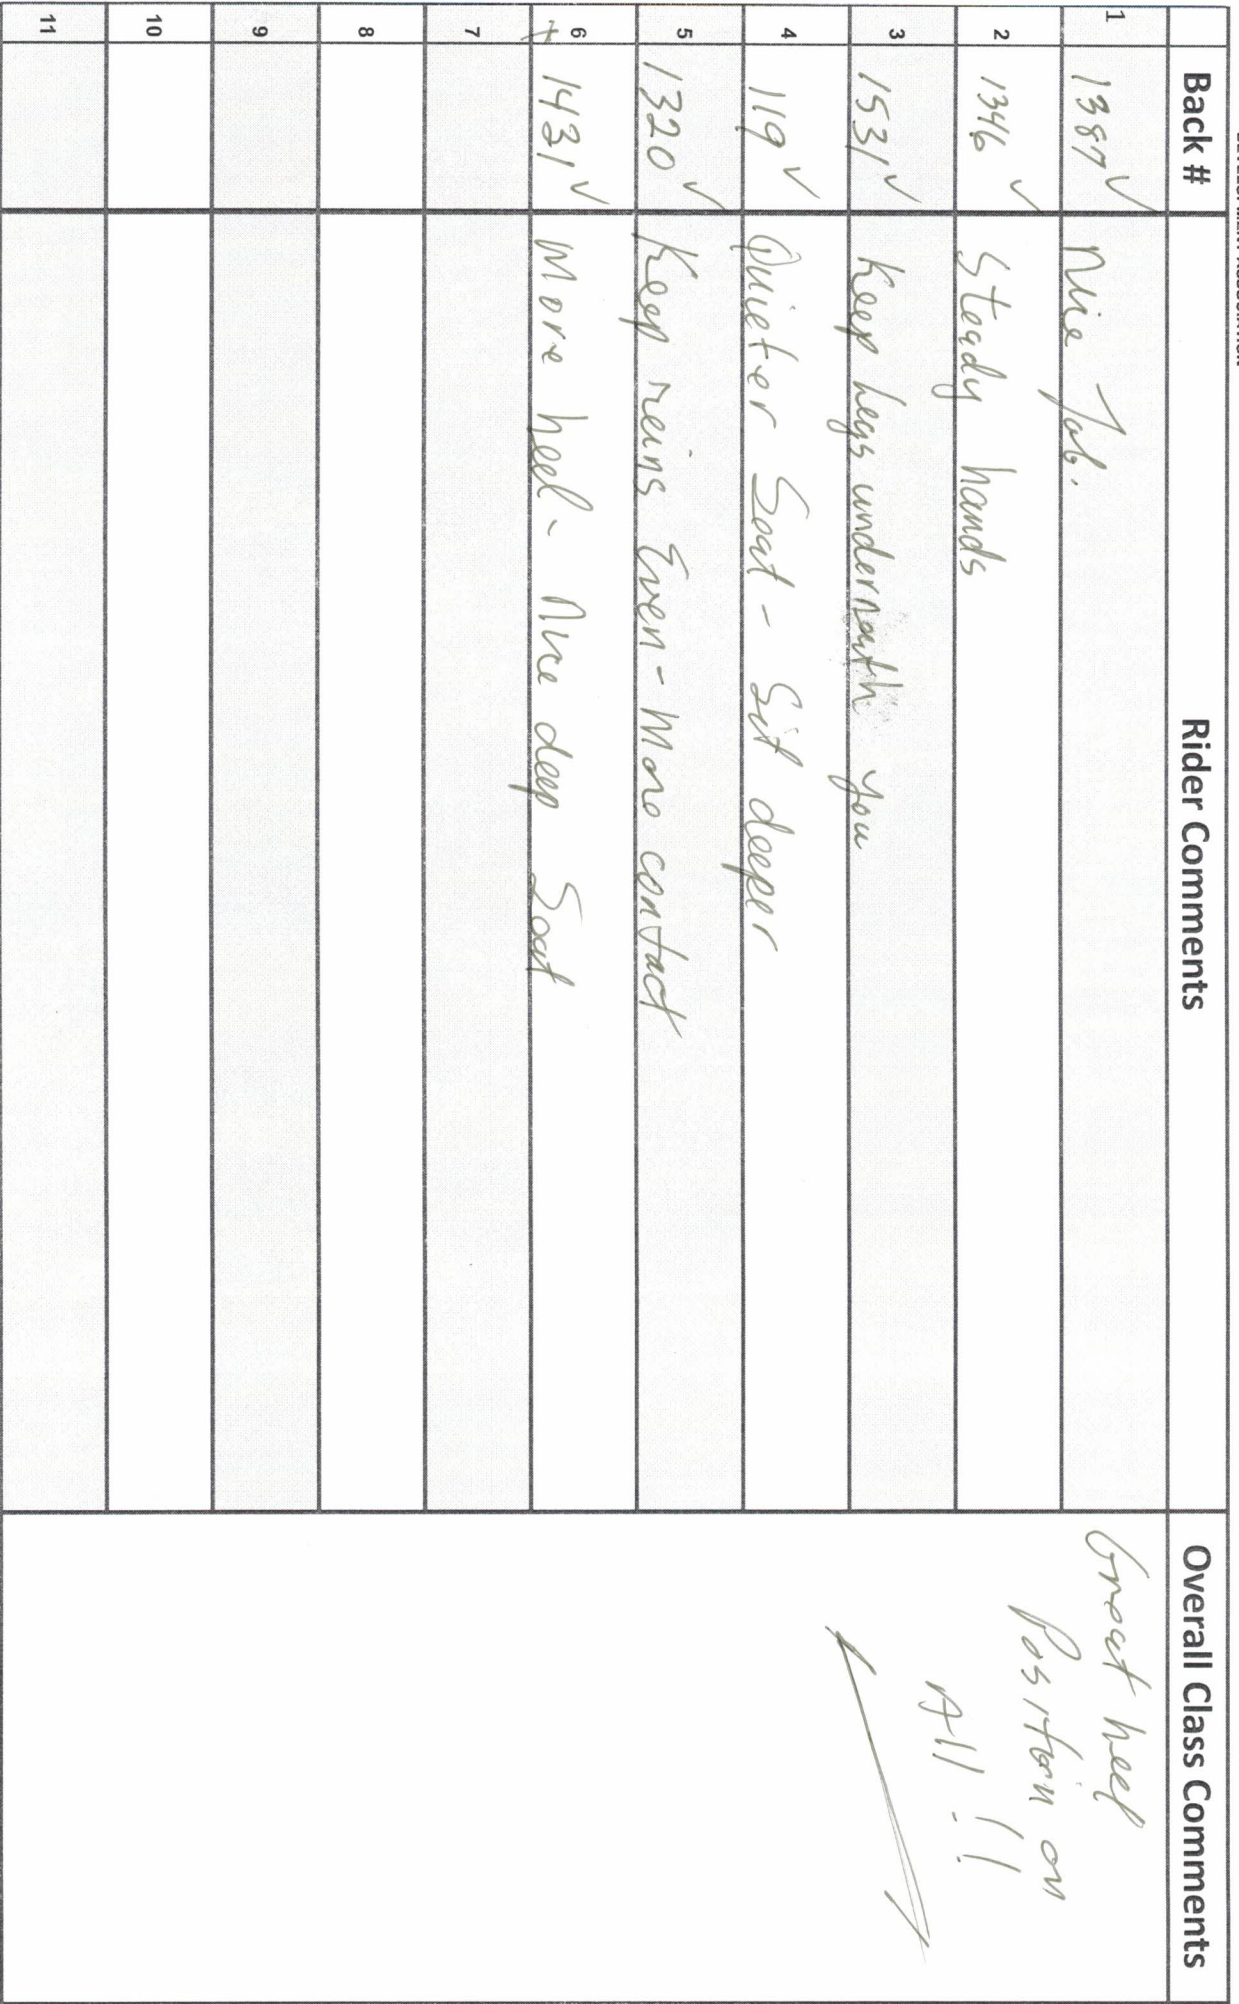 Back # Rider Comments Overall Class Comments
1 1387 ✓ Nice Job. Great heel
2 1346 ✓ Steady hands Position on
3 1531 ✓ Keep legs undernath you All !!
4 119 ✓ Quieter Seat - Sit deeper
5 1320 ✓ Keep reins Even - More contact
6 1431 ✓ More heel - Nice deep Seat
7
8
9
10
11